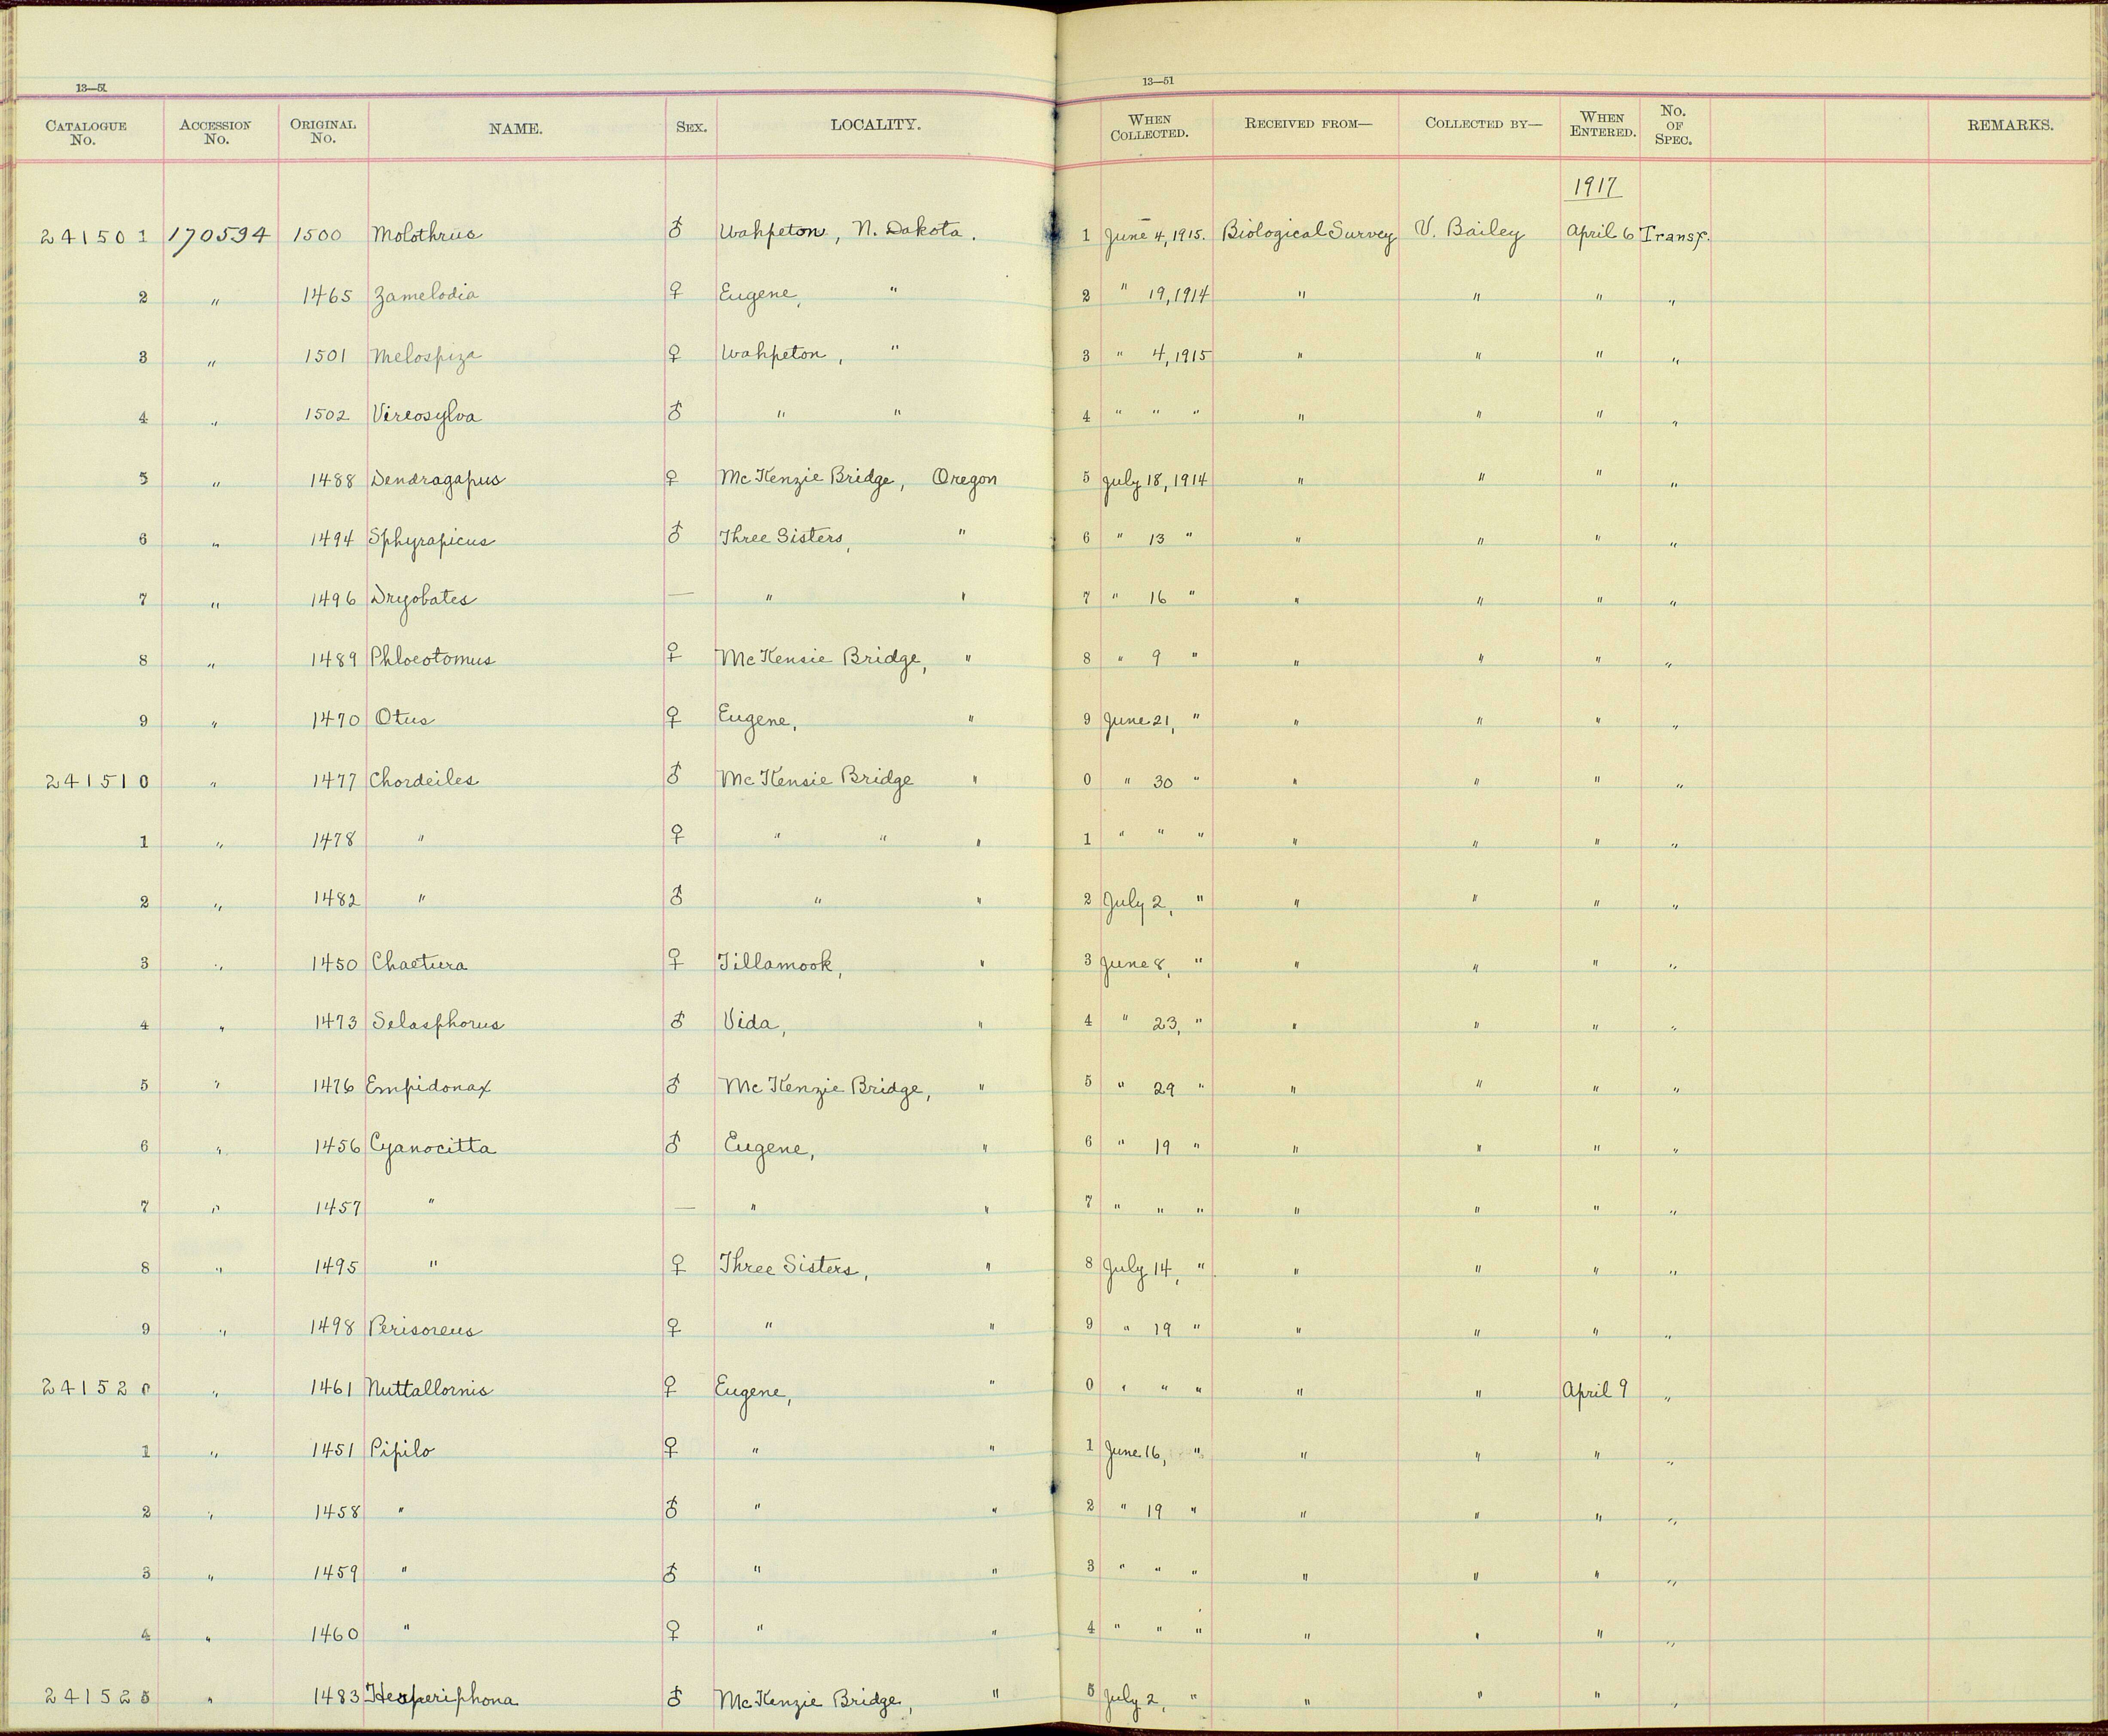 13—51 13—51
CATALOGUE No. ACCESSION No. ORIGINAL No. NAME. SEX. LOCALITY. WHEN COLLECTED. RECEIVED FROM— COLLECTED BY— WHEN ENTERED. No. OF SPEC. REMARKS.
1917
241501 170534 1500 Molothrus ♂ Wahpeton, N. Dakota. 1 June 4, 1915. Biological Survey V. Bailey April 6 Transf.
2 " 1465 Zamelodia ♀ Eugene, " 2 " 19, 1914 " " " "
3 " 1501 Melospiza ♀ Wahpeton, " 3 " 4, 1915 " " " "
4 " 1502 Vireosylva ♂ " " 4 " " " " " " "
5 " 1488 Dendragapus ♀ McKenzie Bridge, Oregon 5 July 18, 1914 " " " "
6 " 1494 Sphyrapicus ♂ Three Sisters, " 6 " 13 " " " " "
7 " 1496 Dryobates — " " 7 " 16 " " " " "
8 " 1489 Phloeotomus ♀ McKensie Bridge, " 8 " 9 " " " " "
9 " 1470 Otus ♀ Eugene, " 9 June 21, " " " " "
241510 " 1477 Chordeiles ♂ McKensie Bridge " 0 " 30 " " " " "
1 " 1478 " ♀ " " " 1 " " " " " " "
2 " 1482 " ♂ " " 2 July 2, " " " " "
3 " 1450 Chaetura ♀ Tillamook, " 3 June 8, " " " " "
4 " 1473 Selasphorus ♂ Vida, " 4 " 23, " " " " "
5 " 1476 Empidonax ♂ McKenzie Bridge, " 5 " 29 " " " " "
6 " 1456 Cyanocitta ♂ Eugene, " 6 " 19 " " " " "
7 " 1457 " — " " 7 " " " " " " "
8 " 1495 " ♀ Three Sisters, " 8 July 14, " " " " "
9 " 1498 Perisoreus ♀ " " 9 " 19 " " " " "
241520 " 1461 Nuttallornis ♀ Eugene, " 0 " " " " " April 9 "
1 " 1451 Pipilo ♀ " " 1 June 16, " " " " "
2 " 1458 " ♂ " " 2 " 19 " " " " "
3 " 1459 " ♂ " " 3 " " " " " " "
4 " 1460 " ♀ " " 4 " " " " " " "
241525 " 1483 Hesperiphona ♂ McKenzie Bridge, " 5 July 2, " " " " "